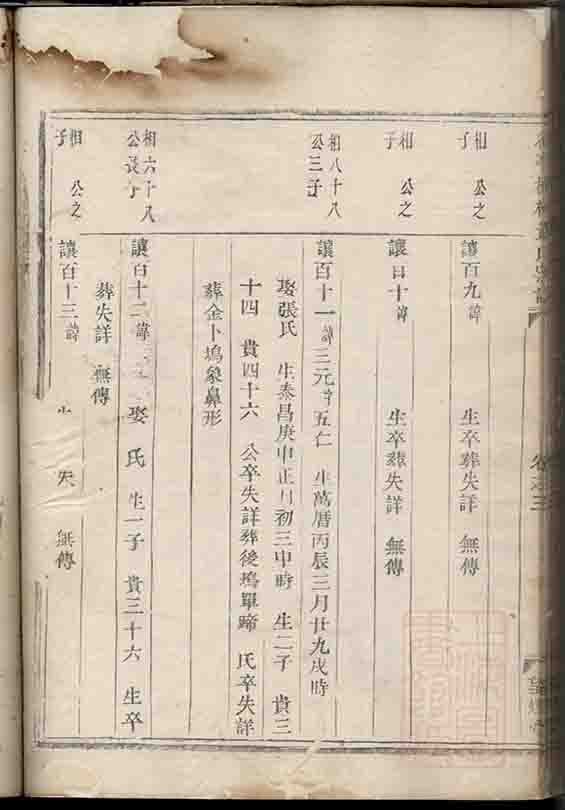 卷之三
相 公之子
讓百九諱 生卒葬失詳 無傳
相 公之子
讓百十諱 生卒葬失詳 無傳
相八十八公三子
讓百十一諱三元字五仁 生萬曆丙辰三月廿九戌時
娶張氏 生泰昌庚申正月初三申時 生二子 貴三
十四 貴四十六 公卒失詳葬後塢單蹄 氏卒失詳
葬金卜塢象鼻形
相六十八公長子
讓百十二諱 娶 氏 生一子 貴三十六 生卒
葬失詳 無傳
相 公之子
讓百十三諱 生 失 無傳